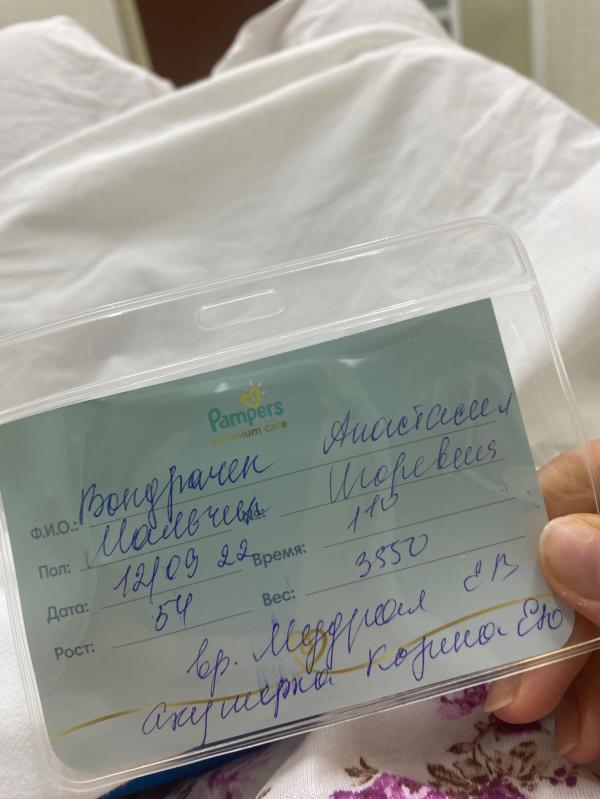 Pampers
premium care
Ф.И.О.: Вондрачек Анастасия
Игоревна
Пол: Мальчик
Дата: 12/09 22 Время: 1 10
Рост: 54 Вес: 3550
вр. ЕВ
акушерка Козина ЕЮ